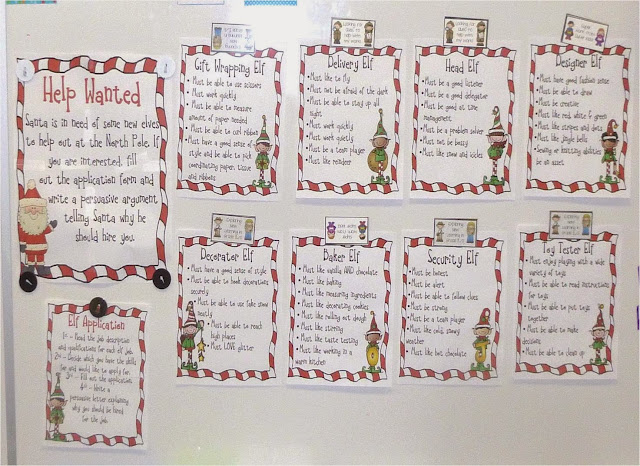 Help Wanted
Santa is in need of some new elves
to help out at the North Pole. If
you are interested, fill
out the application form and
write a persuasive argument
telling Santa why he
should hire you.
Elf Application
1st - Read the job description
and qualifications for each elf job.
2nd - Decide which you have the skills
for and would like to apply for.
3rd - Fill out the application
4th - Write a
persuasive letter explaining
why you should be hired
for the job.
Gift Wrapping Elf
• Must be able to use scissors
• Must work quickly
• Must be able to measure
amount of paper needed
• Must be able to curl ribbon
• Must have a good sense of
style and be able to pick
coordinating paper, tissue
and ribbons
Delivery Elf
• Must like to fly
• Must not be afraid of the dark
• Must be able to stay up all
night
• Must work quickly
• Must work quietly
• Must be a team player
• Must like reindeer
Head Elf
• Must be a good listener
• Must be a good delegator
• Must be good at time
management
• Must be a problem solver
• Must not be bossy
• Must like snow and icicles
Designer Elf
• Must have good fashion sense
• Must be able to draw
• Must be creative
• Must like red, white & green
• Must like stripes and dots
• Must like jingle bells
• Sewing or knitting abilities be
an asset
Decorator Elf
• Must have a good sense of style
• Must be able to hook decorations
securely
• Must be able to use fake snow
neatly
• Must be able to reach
high places
• Must LOVE glitter
Baker Elf
• Must like vanilla AND chocolate
• Must like baking
• Must like measuring ingredients
• Must like decorating cookies
• Must like rolling out dough
• Must like stirring
• Must like taste testing
• Must like working in a
warm kitchen
Security Elf
• Must be honest
• Must be alert
• Must be able to follow clues
• Must be strong
• Must be a team player
• Must like cold, snowy
weather
• Must like hot chocolate
Toy Tester Elf
• Must enjoy playing with a wide
variety of toys
• Must be able to read instructions
for toys
• Must be able to put toys
together
• Must be able to make
decisions
• Must be able to clean up